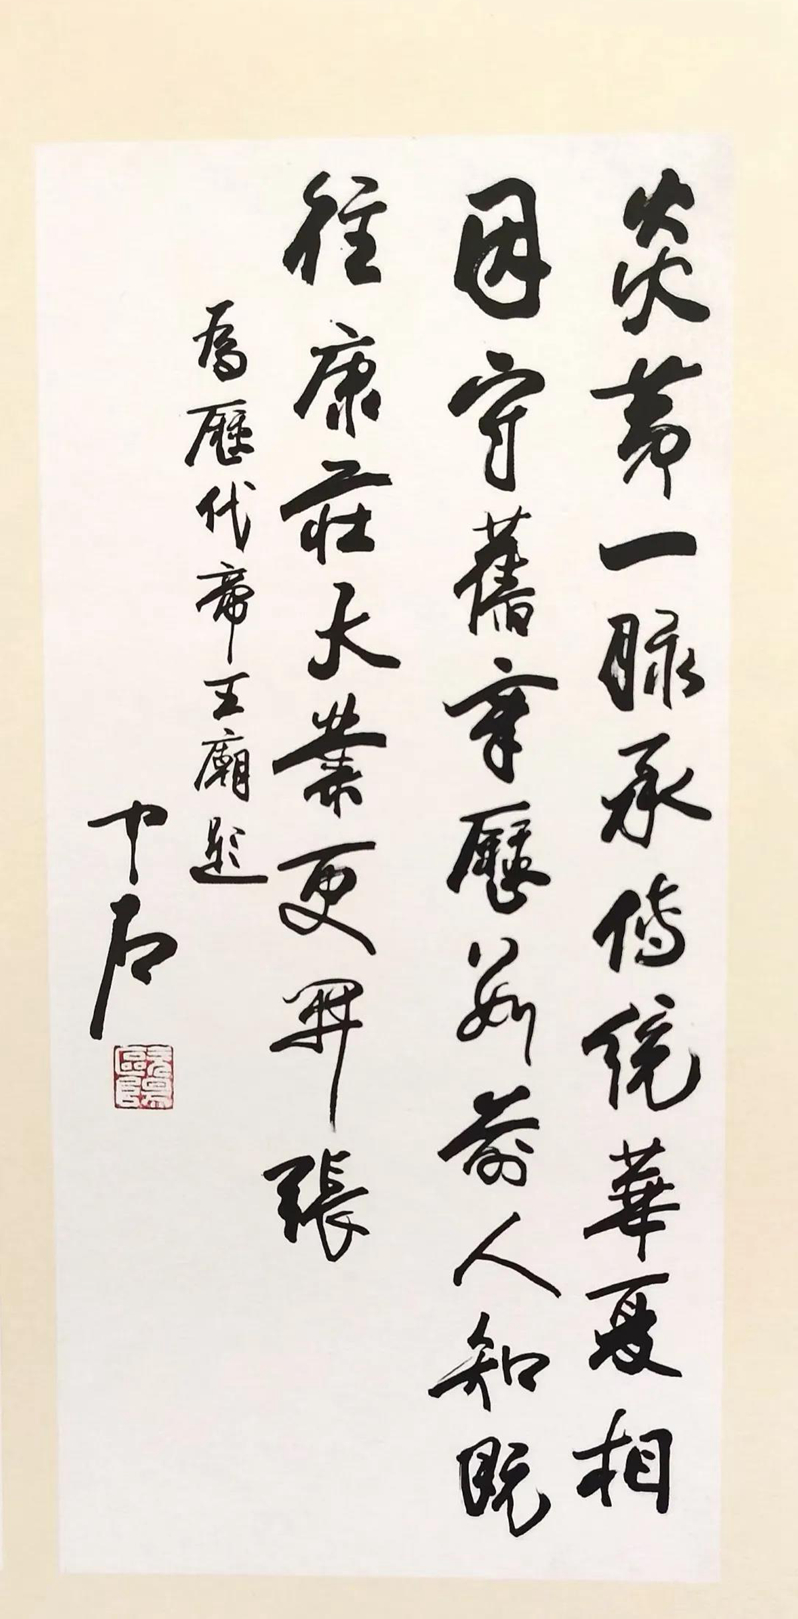 炎黄一脉承傳統華夏相
因守舊章歷數前人知既
往康莊大業更開張
為歷代帝王廟題
中石